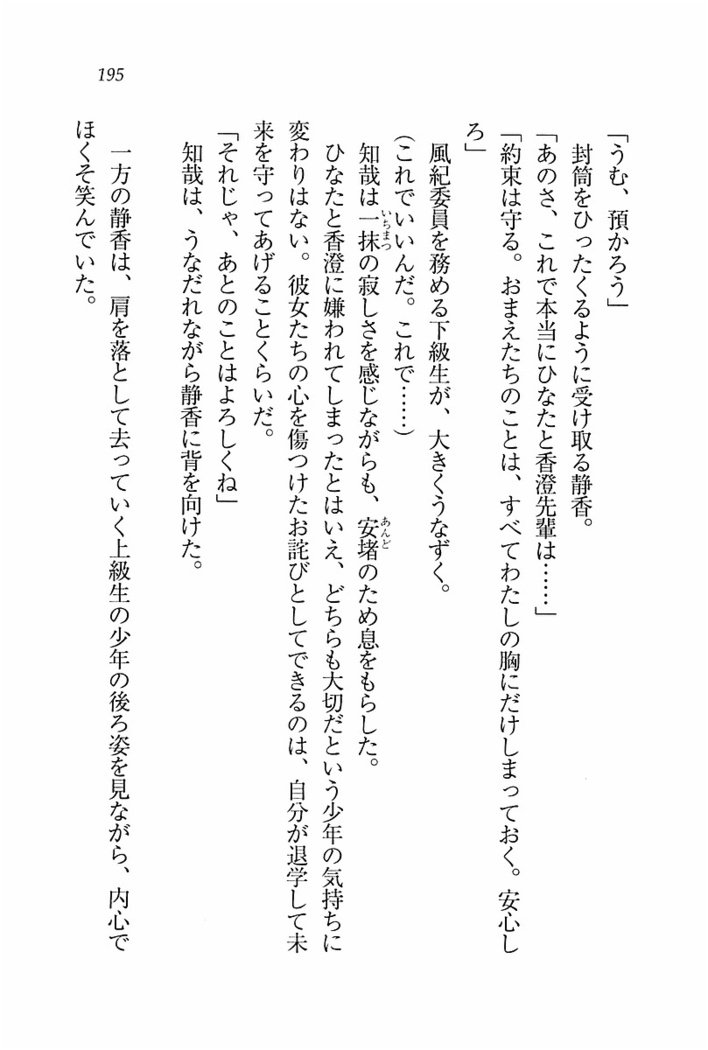 195
「うむ、預かろう」
封筒をひったくるように受け取る静香。
「あのさ、これで本当にひなたと香澄先輩は……」
「約束は守る。おまえたちのことは、すべてわたしの胸にだけしまっておく。安心し
ろ」
風紀委員を務める下級生が、大きくうなずく。
(これでいいんだ。これで……)
知哉は一抹の寂しさを感じながらも、安堵のため息をもらした。
ひなたと香澄に嫌われてしまったとはいえ、どちらも大切だという少年の気持ちに
変わりはない。彼女たちの心を傷つけたお詫びとしてできるのは、自分が退学して未
来を守ってあげることくらいだ。
「それじゃ、あとのことはよろしくね」
知哉は、うなだれながら静香に背を向けた。
一方の静香は、肩を落として去っていく上級生の少年の後ろ姿を見ながら、内心で
ほくそ笑んでいた。